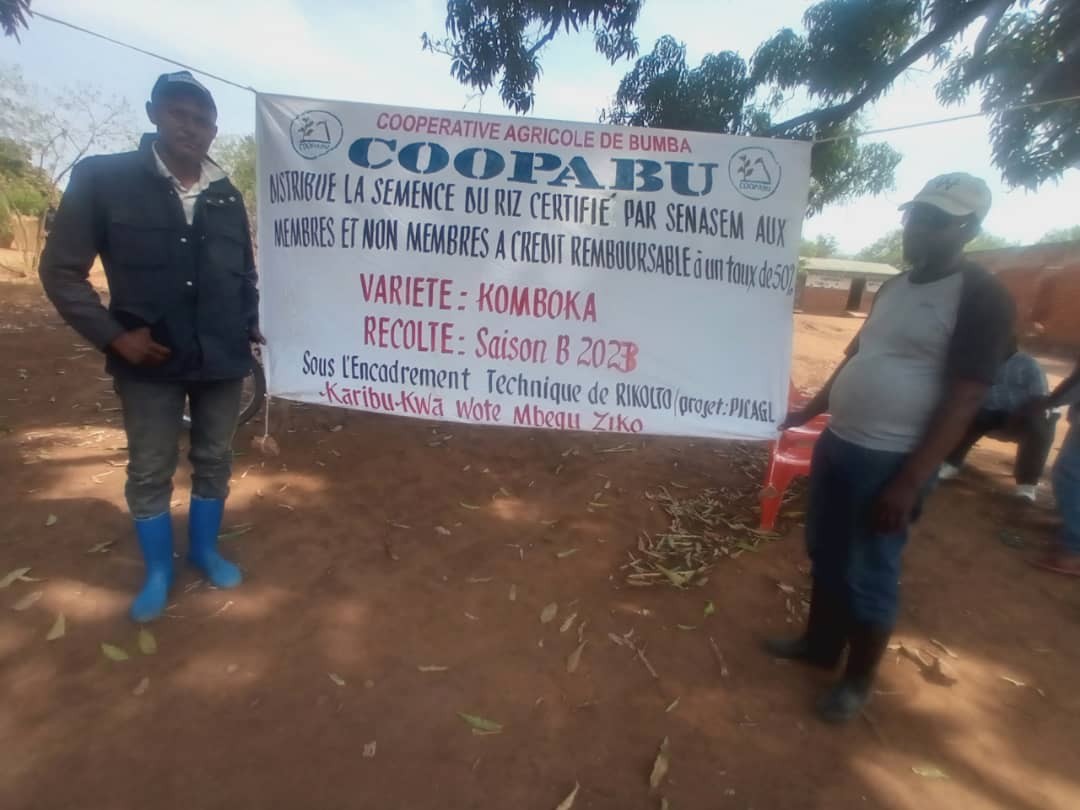 COOPERATIVE AGRICOLE DE BUMBA
COOPABU
COOPABU
COOPABU
DISTRIBUE LA SEMENCE DU RIZ CERTIFIÉ PAR SENASEM AUX
MEMBRES ET NON MEMBRES A CREDIT REMBOURSABLE à un taux de 50%
VARIETE: KOMBOKA
RECOLTE: Saison B 2023
Sous L'Encadrement Technique de RIKOLTO/projet: PICAGL
-Karibu-Kwa Wote Mbegu Ziko